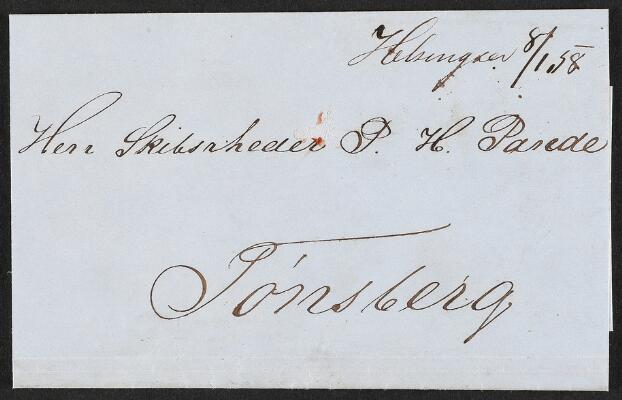 Helsingøer 8/1 58
Herr Skibsrheder P. H. Parede
Tönsberg